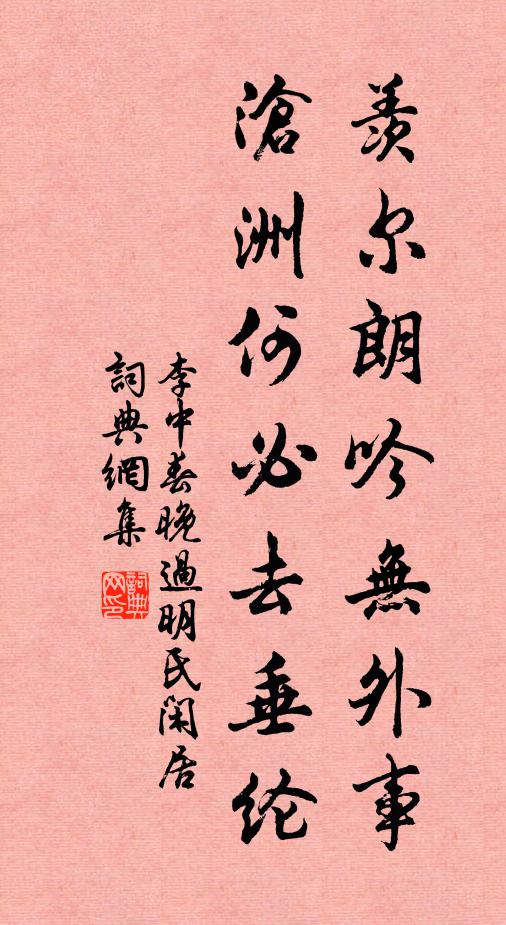 羨尔朗吟無外事
滄洲何必去垂纶
李中春晚過明氏閑居
詞典網集
詞典网印